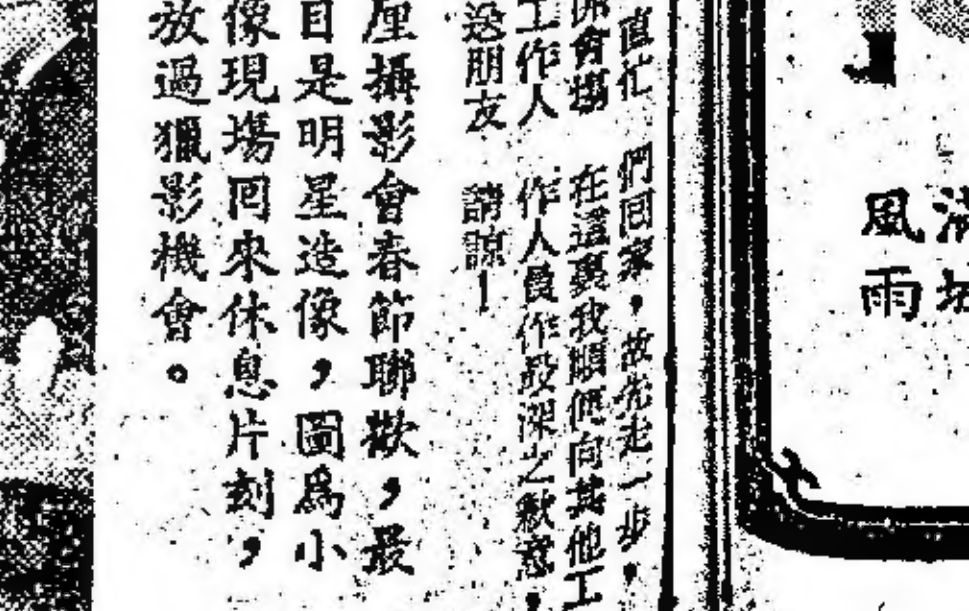 滿城
風雨
直忙
們回家，故先走一步，
佛會場
在這裏我順便向其他工
工作人
作人員作致深之歉意，
送朋友
請諒！
厘攝影會春節聯歡，最
目是明星造像，圖爲小
像現塲回來休息片刻，
放過獵影機會。